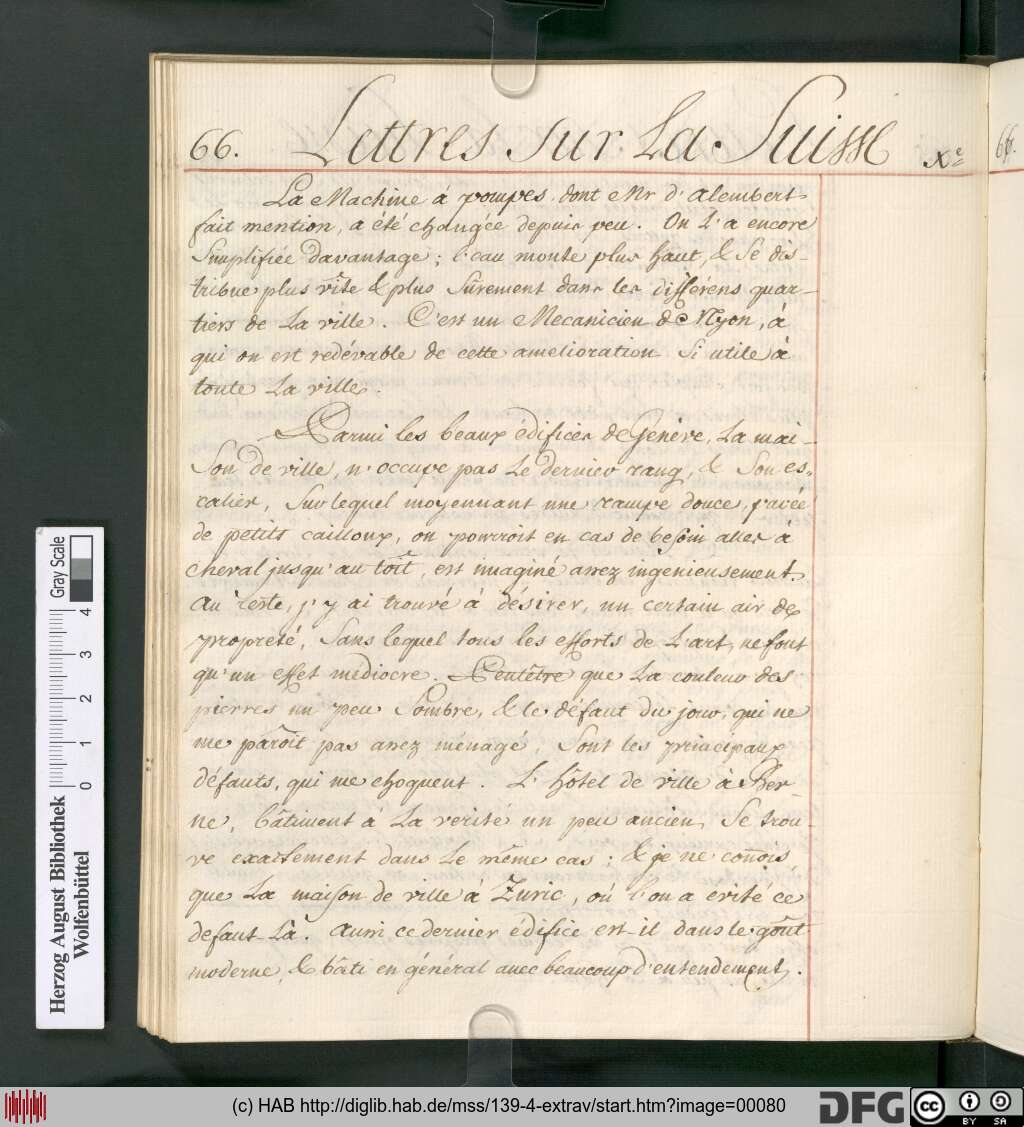 66. Lettres sur La Suisse Xe
La Machine à pompes, dont Mr d'Alembert
fait mention, a été changée depuis peu. On l'a encore
simplifiée davantage; l'eau monte plus haut, & se dis-
tribue plus vîte & plus sûrement dans les différens quar-
tiers de La ville. C'est un Mecanicien de Nyon, à
qui on est redévable de cette amelioration si utile à
toute La ville.
Parmi les beaux édifices de Genève, La mai-
son de ville, n'occupe pas Le dernier rang, & son es-
calier, sur lequel moyennant une rampe douce, pavée
de petits cailloux, on pourroit en cas de besoin aller à
cheval jusqu'au toît, est imaginé assez ingenieusement.
Au reste, j'y ai trouvé à désirer, un certain air de
propreté, sans lequel tous les efforts de L'art, ne font
qu'un effet médiocre. Peutêtre que La couleur des
pierres un peu sombre, & le défaut du jour, qui ne
me paroît pas assez ménagé, sont les principaux
défauts, qui me choquent. L'hôtel de ville à Ber-
ne, bâtiment à La verité un peu ancien, se trou-
ve exactement dans Le même cas; & je ne connois
que La maison de ville à Zuric, où l'on a évité ce
defaut-Là. Aussi ce dernier édifice est-il dans le goût
moderne, & bâti en général avec beaucoup d'entendement.
66.
Gray Scale
0 1 2 3 4
Herzog August Bibliothek
Wolfenbüttel
(c) HAB http://diglib.hab.de/mss/139-4-extrav/start.htm?image=00080
DFG
cc BY SA